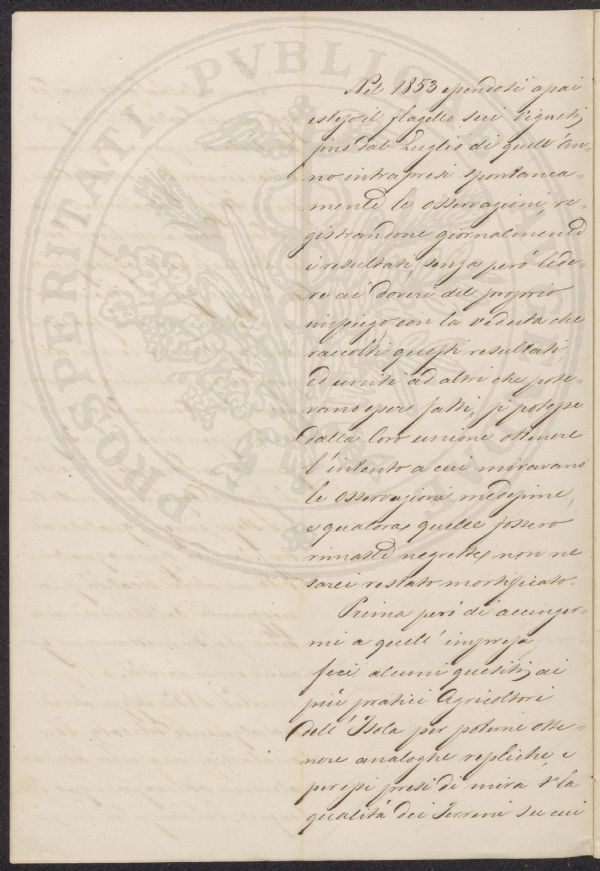 Nel 1853 essendosi assai
esteso il flagello sui vigneti,
fino dal Luglio di quell'An-
no intrapresi spontanea-
mente le osservazioni, re-
gistrandone giornalmente
i resultati, senza però lede-
re ai doveri del proprio
impiego con la veduta che
raccolti questi resultati,
ed uniti ad altri che pote-
vano essere fatti, si potesse
dalla loro unione ottenere
l'intento a cui miravano
le osservazioni medesime,
e qualora quelle fossero
rimaste neglette, non ne
sarei restato mortificato.
Prima però di accinger-
mi a quell'impresa
feci alcuni quesiti, ai
più pratici Agricoltori
dell'Isola per poterne otte-
nere analoghe repliche, e
per essi presi di mira 1.° la
qualità dei Terreni su cui
PROSPERITATI PVBLICAE